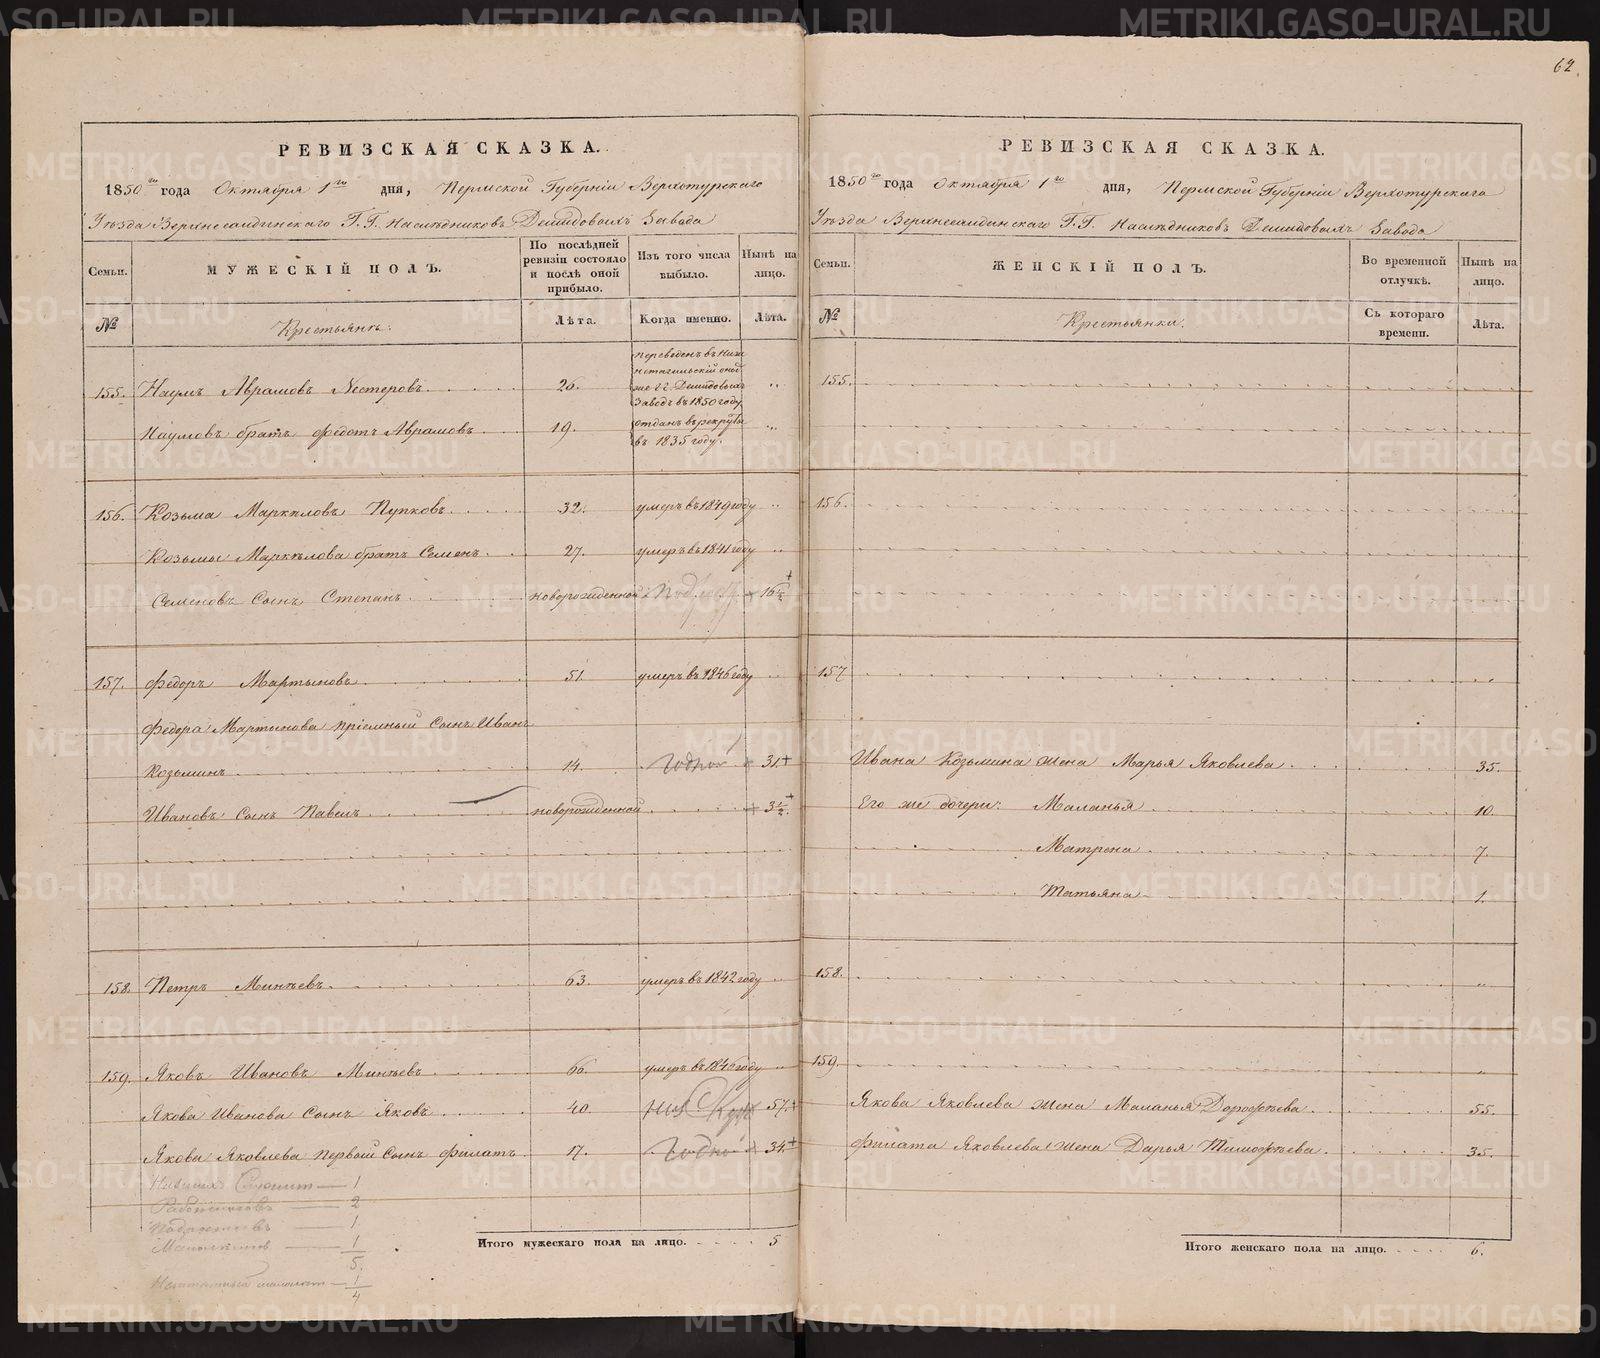 62.
РЕВИЗСКАЯ СКАЗКА.
1850го года Октября 1го дня, Пермской Губерніи Верхотурскаго
Уѣзда Верхнесалдинскаго Г.Г. Наслѣдниковъ Демидовыхъ Завода
Семьи.
МУЖЕСКІЙ ПОЛЪ.
По послѣдней ревизіи состояло и послѣ оной прибыло.
Изъ того числа выбыло.
Нынѣ на лицо.
№
Крестьянъ:
Лѣта.
Когда именно.
Лѣта.
155. Наумъ Аврамовъ Нестеровъ 26. переведенъ въ Нижнетагильскій оныхже Г.Г. Демидовыхъ Заводъ въ 1850 году „
Наумовъ братъ Федотъ Аврамовъ 19. отданъ в рекруты въ 1835 году. „
156. Козьма Маркѣловъ Пупковъ 32. умеръ въ 1849 году „
Козьмы Маркѣлова братъ Семенъ 27. умеръ въ 1841 году „
Семеновъ сынъ Степанъ новорожденной + 16½ +
157. Федоръ Мартыновъ 51. умеръ въ 1846 году „
Федора Мартинова пріемный сынъ Иванъ
Козьминъ 14. Годной 31. +
Ивановъ сынъ Павелъ новорожденной + 3½. +
158. Петръ Минѣевъ 63. умеръ въ 1842 году „
159. Яковъ Ивановъ Минѣевъ 66. умеръ въ 1846 году „
Якова Иванова сынъ Яковъ 40. 57. +
Якова Яковлева первой сынъ Филатъ 17. Годной 34. +
1
2
1
1
5.
1
4
Итого мужескаго пола на лицо. 5
РЕВИЗСКАЯ СКАЗКА.
1850го года Октября 1го дня, Пермской Губерніи Верхотурскаго
Уѣзда Верхнесалдинскаго Г.Г. Наслѣдниковъ Демидовыхъ Завода
Семьи.
ЖЕНСКІЙ ПОЛЪ.
Во временной отлучкѣ.
Нынѣ на лицо.
№
Крестьянки:
Съ котораго времени.
Лѣта.
155.
156.
157 „
Ивана Козьмина жена Марья Яковлева 35.
Его же дочери: Маланья 10.
Матрена 7.
Татьяна 1.
158. „
159. „
Якова Яковлева жена Маланья Дорофѣева 55.
Филата Яковлева жена Дарья Тимофѣева 35.
Итого женскаго пола на лицо. 6.
METRIKI.GASO-URAL.RU